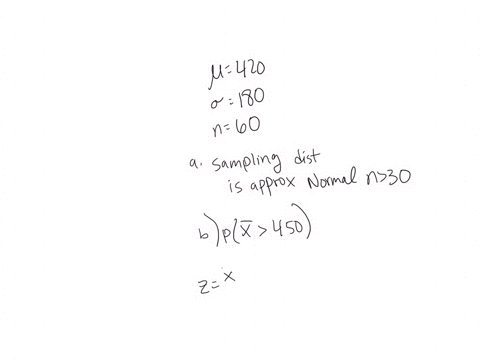 μ=420
σ=180
n=60
a. sampling dist
is approx Normal n>30
b) p(x̄ > 450)
z= x